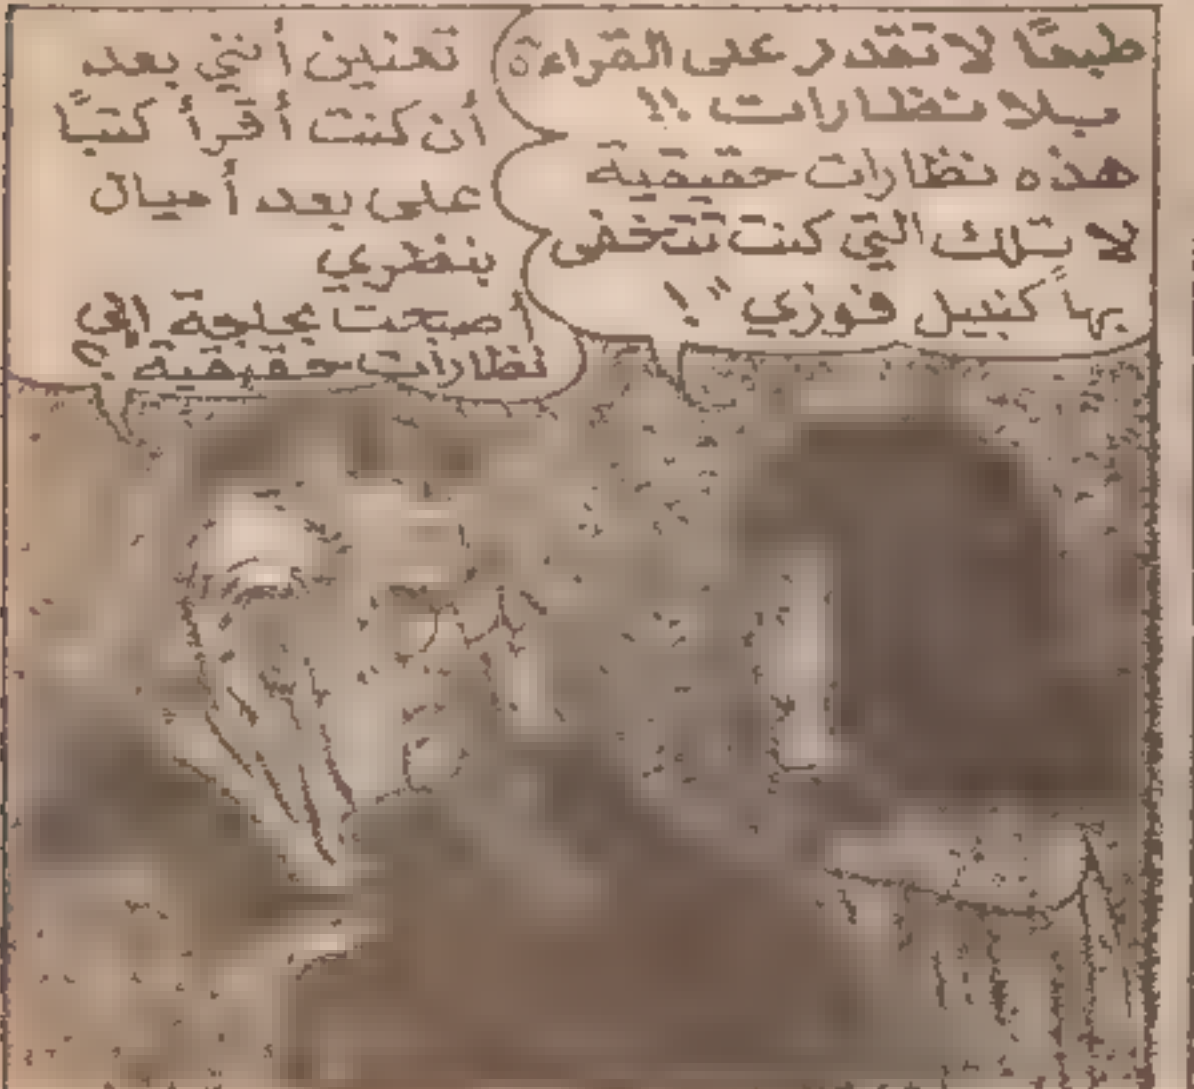 طبعًا لا تقدر على القراءة
بلا نظارات !!
هذه نظارات حقيقية
لا تلك التي كنت تتخفى
بها كنبيل فوزي"!
تعنين أنني بعد
أن كنت أقرأ كتبًا
على بعد أميال
بنظري
اصبحت بحاجة الى
نظارات حقيقية ؟